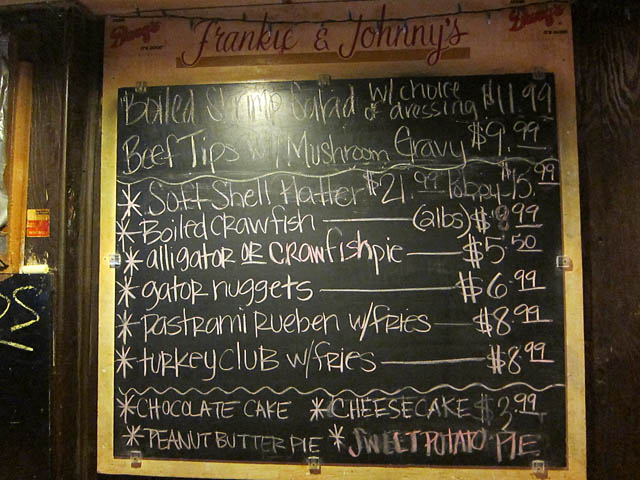 Frankie & Johnny's
Boiled Shrimp Salad w/ choice of dressing $11.99
Beef Tips w/ Mushroom Gravy $9.99
* Soft Shell Platter $21.99 Poboy $15.99
* Boiled crawfish (2lbs) $9.99
* alligator OR CRAWfishpie $5.50
* gator nuggets $6.99
* pastrami Rueben w/fries $8.99
* turkey club w/fries $8.99
* CHOCOLATE CAKE * CHEESECAKE $3.99
* PEANUT BUTTER PIE * SWEET POTATO PIE